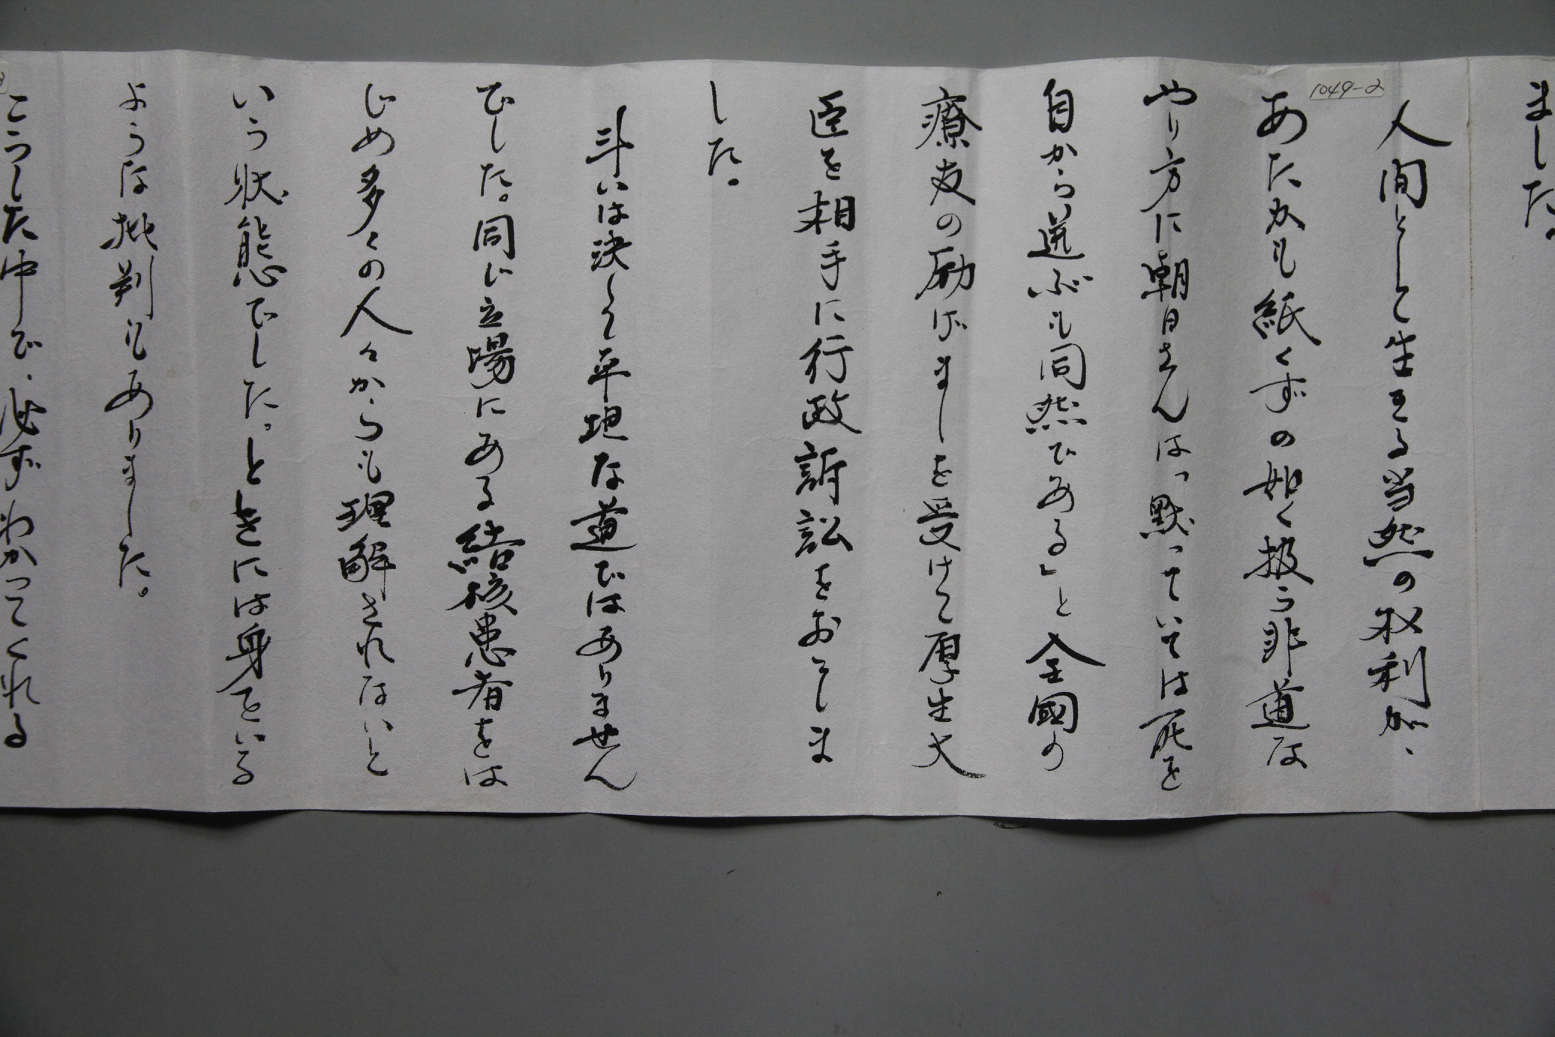 ました。
1049-2
人間として生きる当然の权利が、
あたかも紙くずの如く扱う非道な
やり方に朝日さんは、黙っていては死を
自から選ぶも同然である」と全国の
療友の励ましを受けて厚生大
臣を相手に行政訴訟をおこしま
した。
斗いは決して平坦な道ではありません
でした。同じ立場にある結核患者をは
じめ多くの人々からも理解されないと
いう状態でした。ときには身をいる
ような批判もありました。
こうした中で、必ずわかってくれる